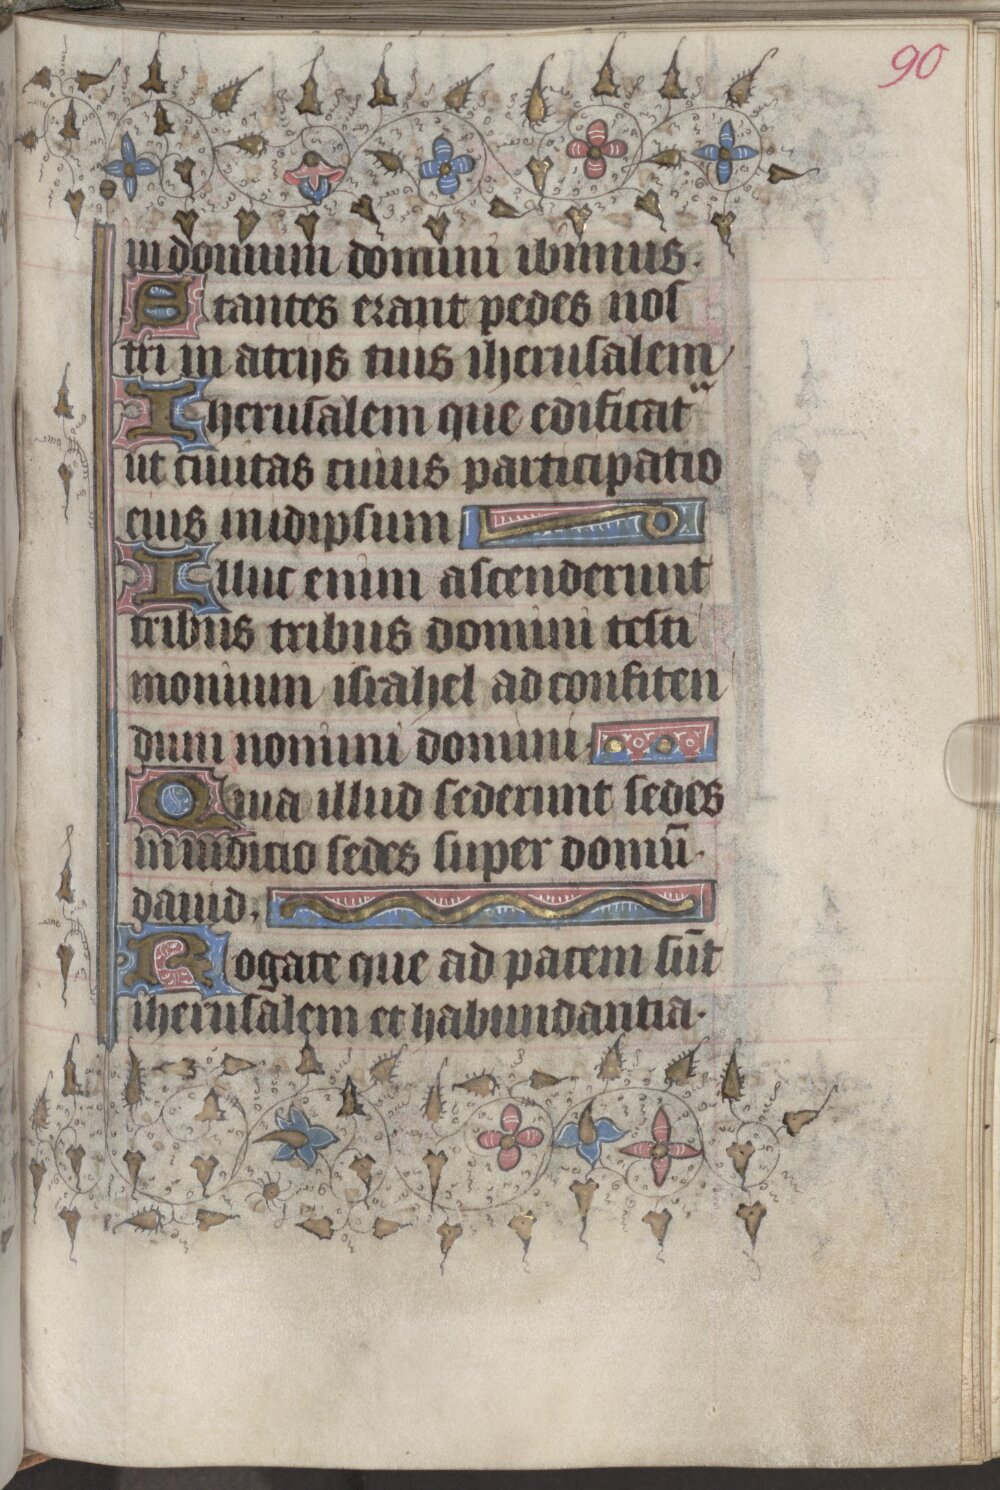 90
in domum domini ibimus.
Stantes erant pedes nos
tri in atrijs tuis iherusalem
Iherusalem que edificat᷑
ut ciuitas cuius participatio
eius in idipsum
Illuc enim ascenderunt
tribus tribus domini testi
monium israhel ad confiten
dum nomini domini.
Quia illud sederunt sedes
in iudicio sedes super domū.
dauid.
Rogate que ad pacem sūt
iherusalem et habundantia.